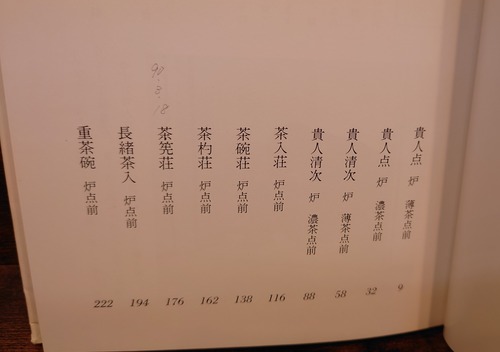 貴人点 炉 薄茶点前 9
貴人点 炉 濃茶点前 32
貴人清次 炉 薄茶点前 58
貴人清次 炉 濃茶点前 88
茶入荘 炉点前 116
茶碗荘 炉点前 138
茶杓荘 炉点前 162
茶筅荘 炉点前 176
長緒茶入 炉点前 194
重茶碗 炉点前 222